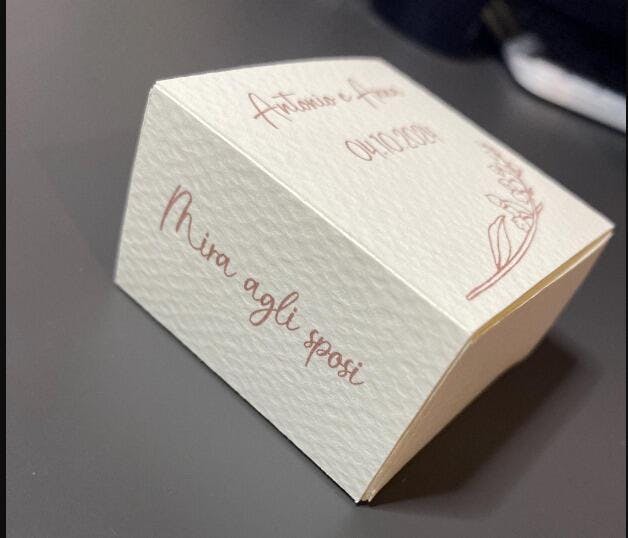 Antonio e Anna
04.10.2024
Mira agli sposi